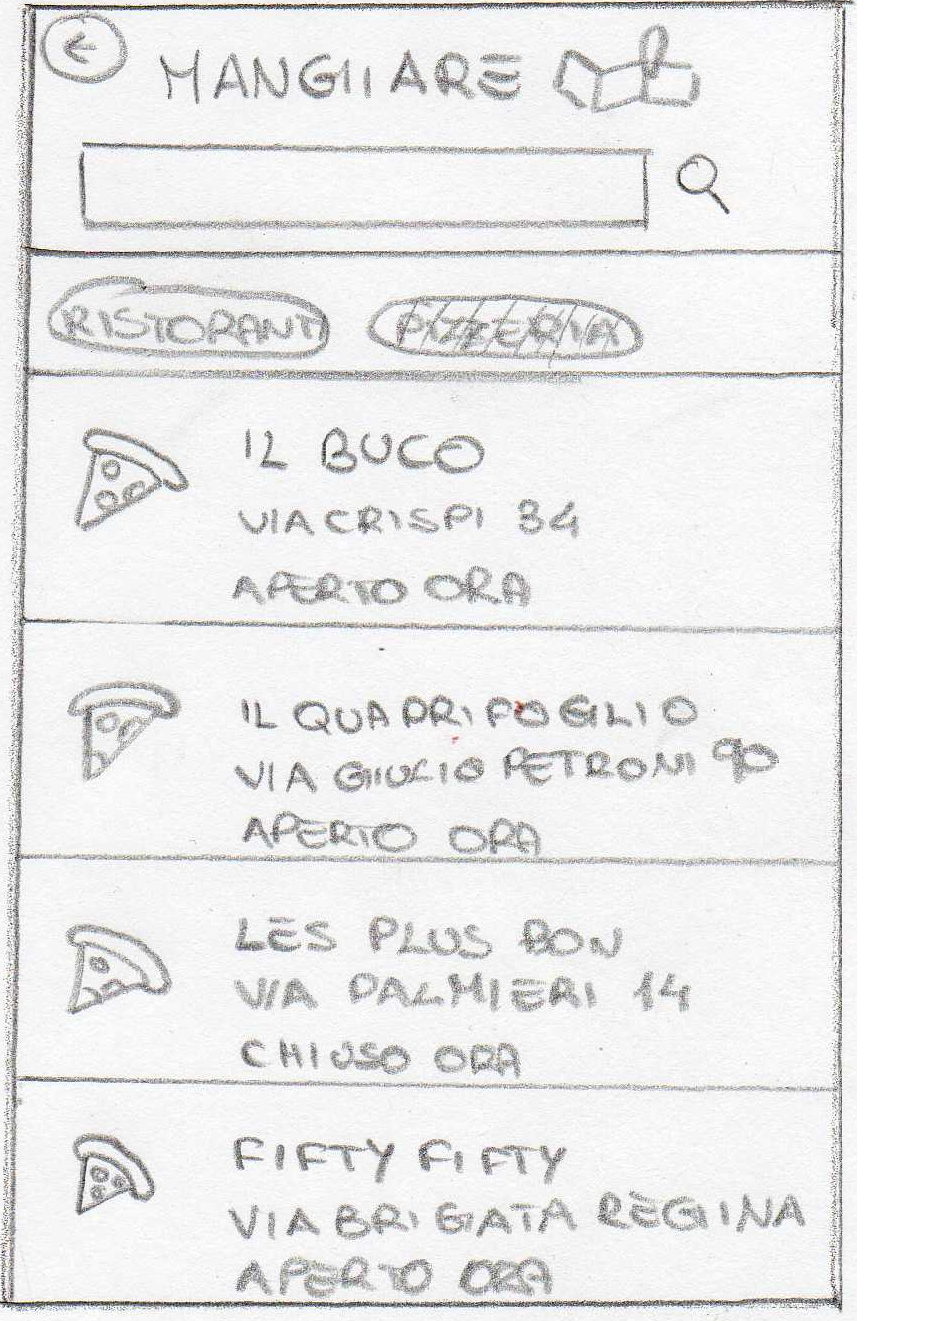 MANGIARE
RISTORANTI PIZZERIA
IL BUCO
VIA CRISPI 34
APERTO ORA
IL QUADRIFOGLIO
VIA GIULIO PETRONI 90
APERTO ORA
LES PLUS BON
VIA PALMIERI 14
CHIUSO ORA
FIFTY FIFTY
VIA BRIGATA REGINA
APERTO ORA